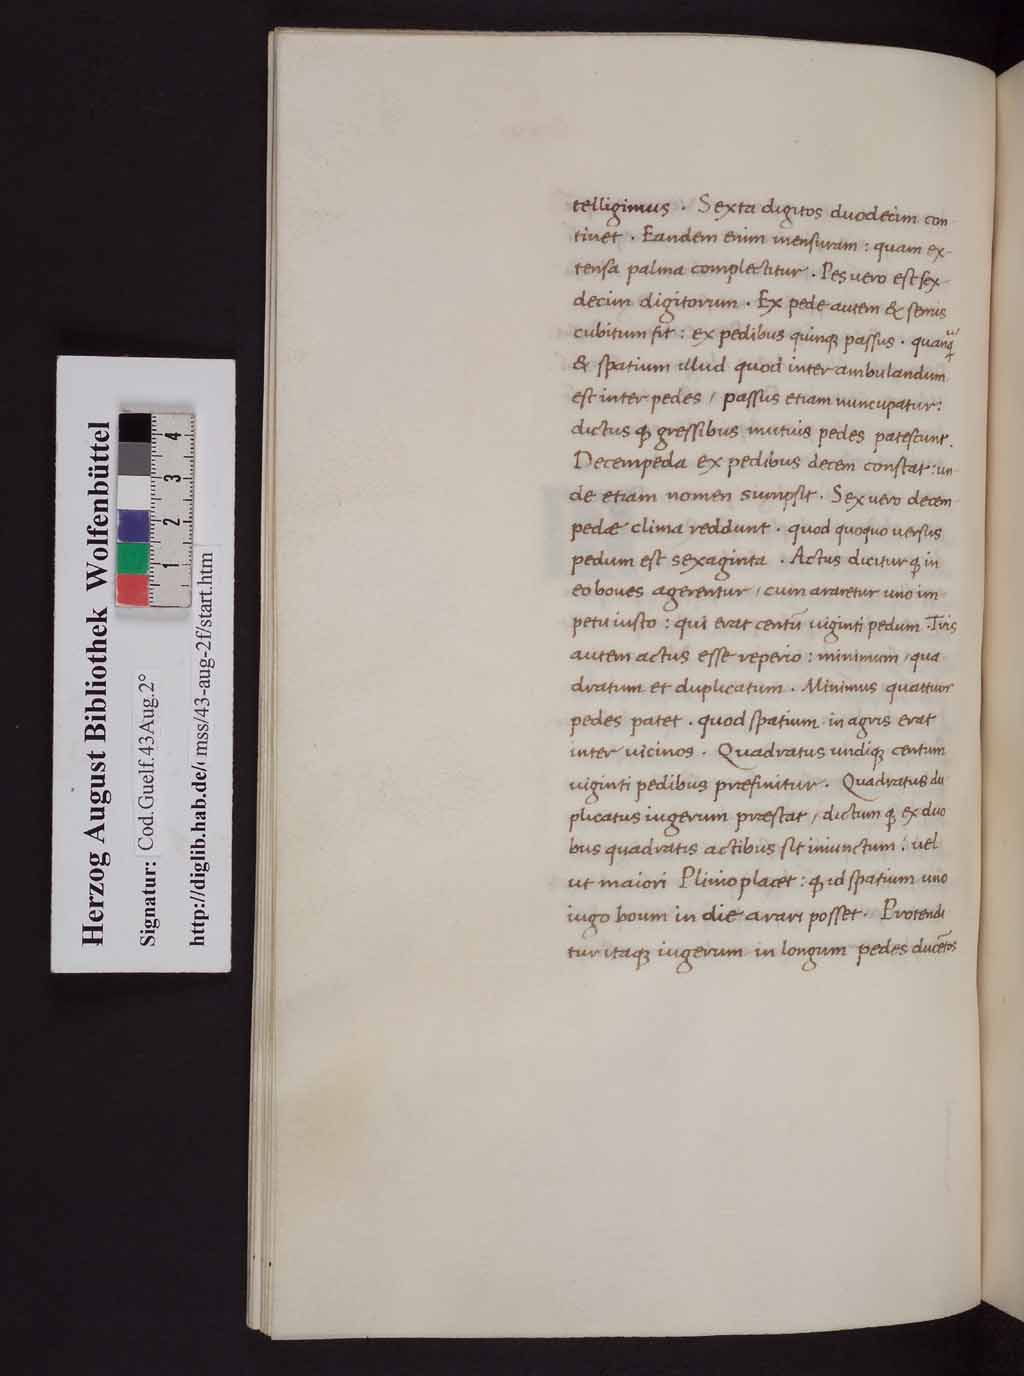 Herzog August Bibliothek Wolfenbüttel
Signatur: Cod.Guelf.43Aug.2°
http://diglib.hab.de/mss/43-aug-2f/start.htm
1 2 3 4
telligimus . Sexta digitos duodecim con
tinet . Eandem enim mensuram : quam ex-
tensa palma complectitur . Pes uero est sex-
decim digitorum . Ex pede autem & semis
cubitum fit : ex pedibus quinqꝫ passus . quanqꝫ
& spatium illud quod inter ambulandum
est inter pedes / passus etiam nuncupatur :
dictus ꝙ gressibus mutuis pedes patescunt .
Decempeda ex pedibus decem constat : un
de etiam nomen sumpsit . Sex uero decem
pedæ clima reddunt . quod quoquo uersus
pedum est sexaginta . Actus dicitur ꝙ in
eo boues agerentur / cum araretur uno im
petu iusto : qui erat centũ uiginti pedum . Tris
autem actus esse reperio : minimum / qua
dratum et duplicatum . Minimus quattuor
pedes patet . quod spatium in agris erat
inter uicinos . Quadratus undiqꝫ centum
uiginti pedibus præfinitur . Quadratus du
plicatus iugerum præstat / dictum ꝙ ex duo
bus quadratis actibus sit iniunctum : uel
ut maiori Plinio placet : ꝙ id spatium uno
iugo boum in die arari posset . Protendi
tur itaqꝫ iugerum in longum pedes ducẽtos